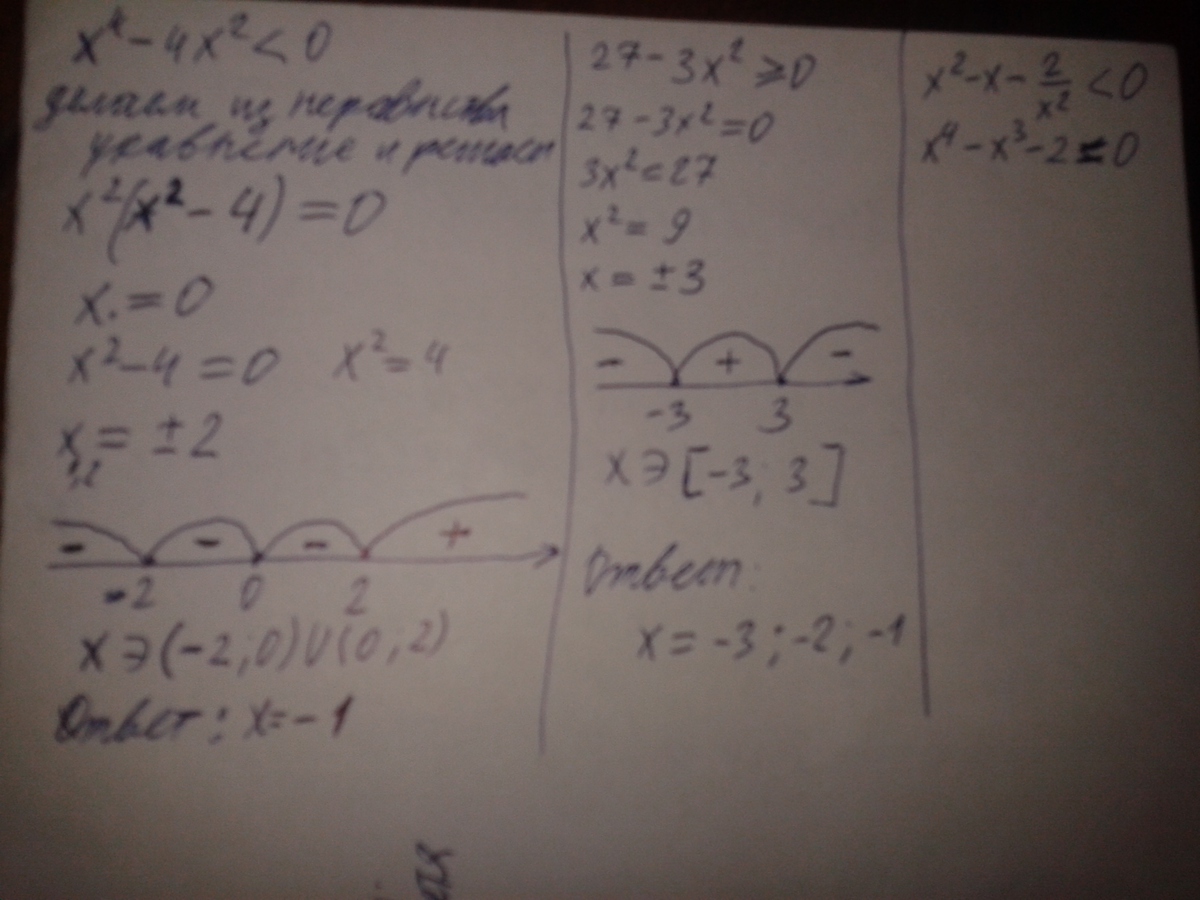 x⁴ - 4x² < 0
делаем из неравенства
уравнение и решаем
x²(x² - 4) = 0
x = 0
x² - 4 = 0 x² = 4
x = ± 2
- - - +
-2 0 2
x ∋ (-2; 0) U (0; 2)
Ответ: x = - 1
27 - 3x² ⩾ 0
27 - 3x² = 0
3x² = 27
x² = 9
x = ± 3
- + -
-3 3
x ∋ [-3; 3]
Ответ:
x = -3; -2; -1
x² - x - 2/x² < 0
x⁴ - x³ - 2 = 0